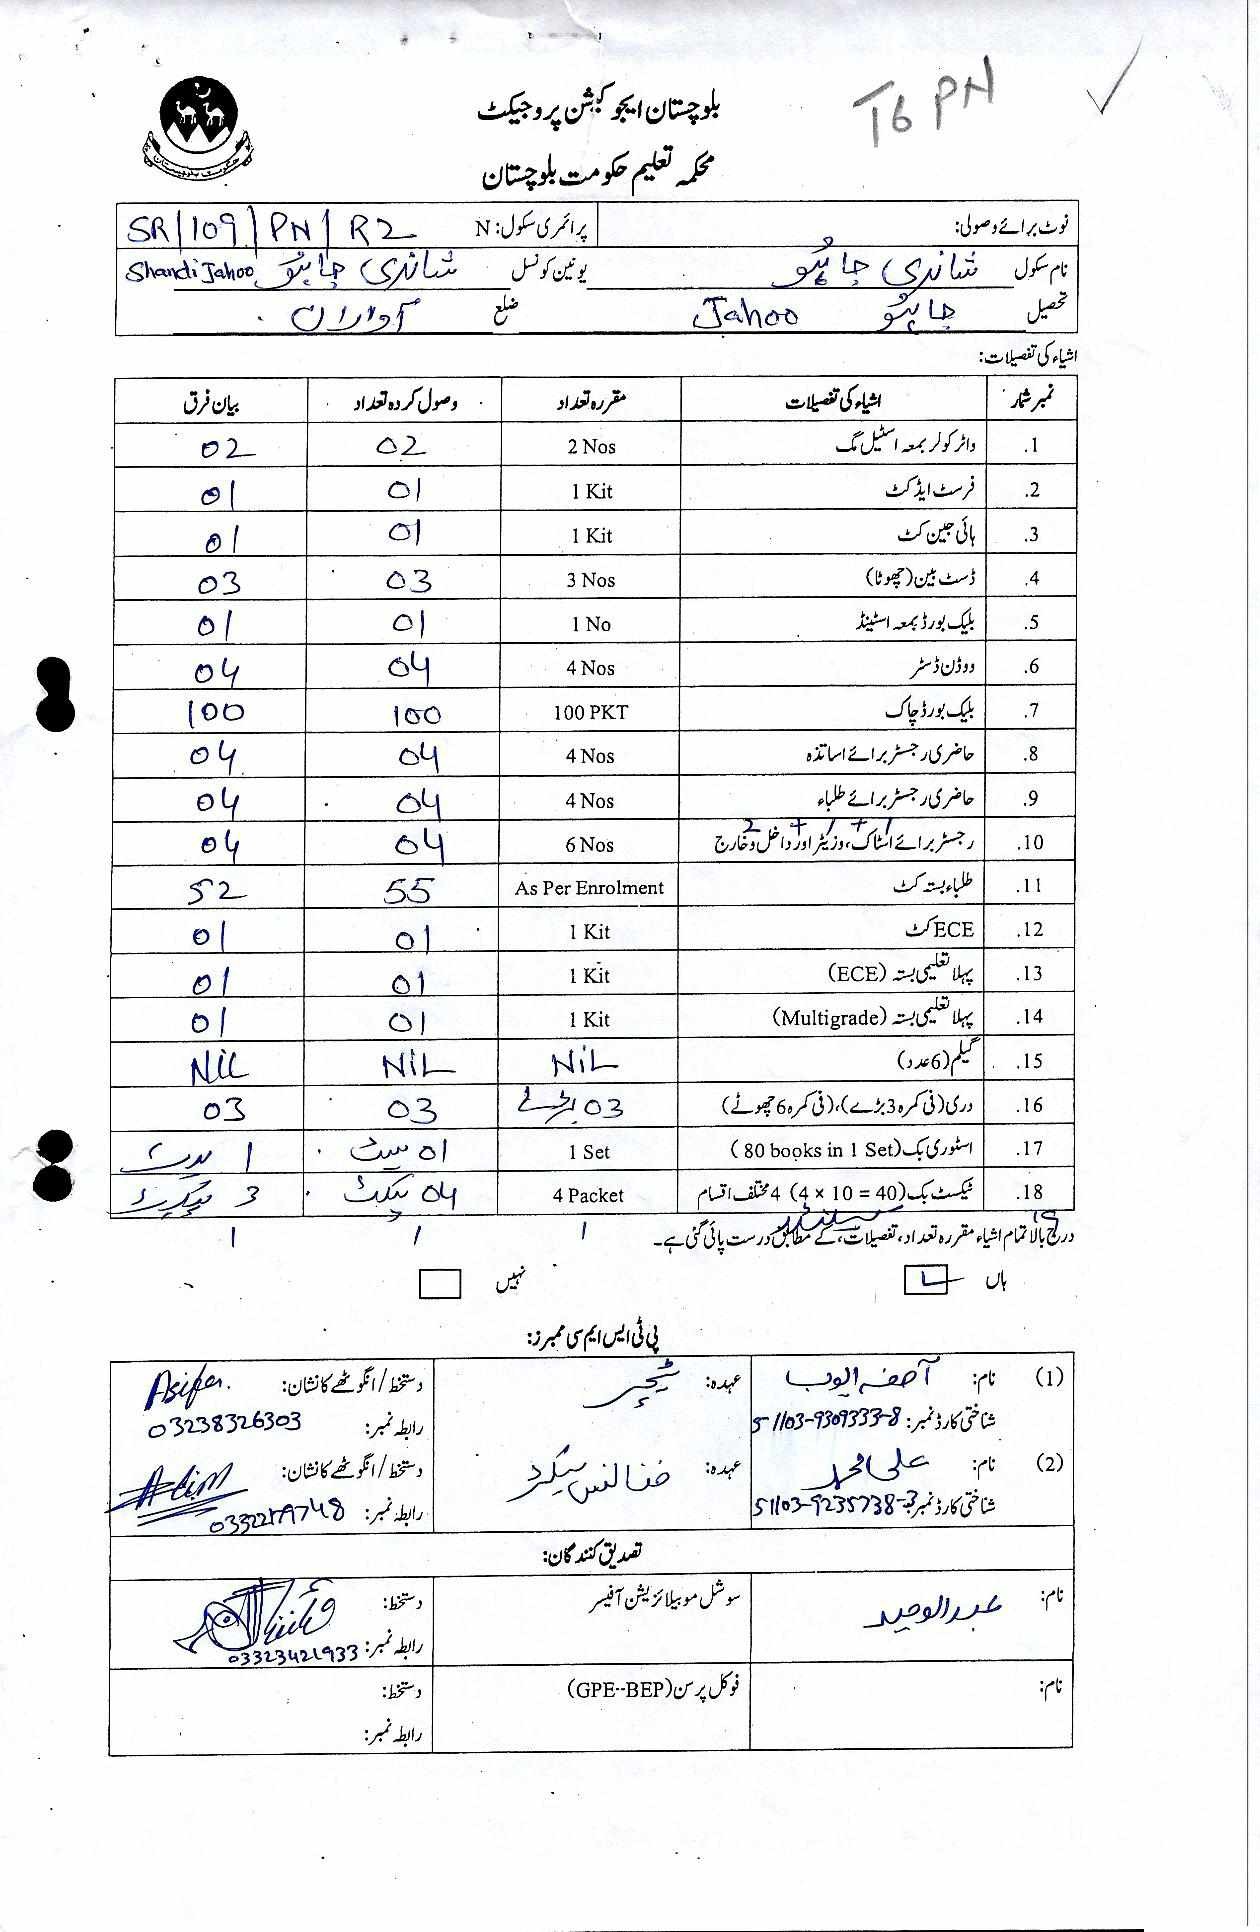 T6 PN
بلوچستان ایجوکیشن پروجیکٹ
محکمہ تعلیم حکومت بلوچستان
نوٹ برائے وصولی: پرائمری سکول: N SR/109/PN/R2
نام سکول شاندی جاہو یونین کونسل شاندی جاہو Shandi Jahoo
تحصیل جاہو Jahoo ضلع آواران
اشیاء کی تفصیلات:
نمبر شمار اشیاء کی تفصیلات مقررہ تعداد وصول کردہ تعداد بیان فرق
1. واٹر کولر بمعہ اسٹیل مگ 2 Nos 02 02
2. فرسٹ ایڈ کٹ 1 Kit 01 01
3. ہائی جین کٹ 1 Kit 01 01
4. ڈسٹ بین (چھوٹا) 3 Nos 03 03
5. بلیک بورڈ بمعہ اسٹینڈ 1 No 01 01
6. ووڈن ڈسٹر 4 Nos 04 04
7. بلیک بورڈ چاک 100 PKT 100 100
8. حاضری رجسٹر برائے اساتذہ 4 Nos 04 04
9. حاضری رجسٹر برائے طلباء 4 Nos 04 04
2 + 1 + 1
10. رجسٹر برائے اسٹاک، وزیٹر اور داخل و خارج 6 Nos 04 04
11. طلباء بستہ کٹ As Per Enrolment 55 52
12. ECE کٹ 1 Kit 01 01
13. پہلا تعلیمی بستہ (ECE) 1 Kit 01 01
14. پہلا تعلیمی بستہ (Multigrade) 1 Kit 01 01
15. گیلم (6 عدد) NiL NiL NiL
16. دری (فی کمرہ 3 بڑے)، (فی کمرہ 6 چھوٹے) 03 بڑے 03 03
17. اسٹوری بک (80 books in 1 Set) 1 Set 01 سیٹ 1 سیٹ
18. ٹیکسٹ بک (4 x 10 = 40) 4 مختلف اقسام 4 Packet 04 پیکٹ 3 پیکٹ
19 1 1 1
درج بالا تمام اشیاء مقررہ تعداد، تفصیلات، کے مطابق درست پائی گئی ہے۔
ہاں نہیں
پی ٹی ایس ایم سی ممبرز:
(1) نام: آصف ایوب عہدہ: ٹیچر دستخط/انگوٹھے کا نشان: Asifa.
شناختی کارڈ نمبر: 51103-9309333-8 رابطہ نمبر: 03238326303
(2) نام: علی محمد عہدہ: فنانس سیکرٹری دستخط/انگوٹھے کا نشان:
شناختی کارڈ نمبر: 51103-9235738-3 رابطہ نمبر:
تصدیق کنندگان:
نام: عبدالوحید سوشل موبیلائزیشن آفیسر دستخط:
رابطہ نمبر: 03323421933
نام: فوکل پرسن (GPE--BEP) دستخط:
رابطہ نمبر: